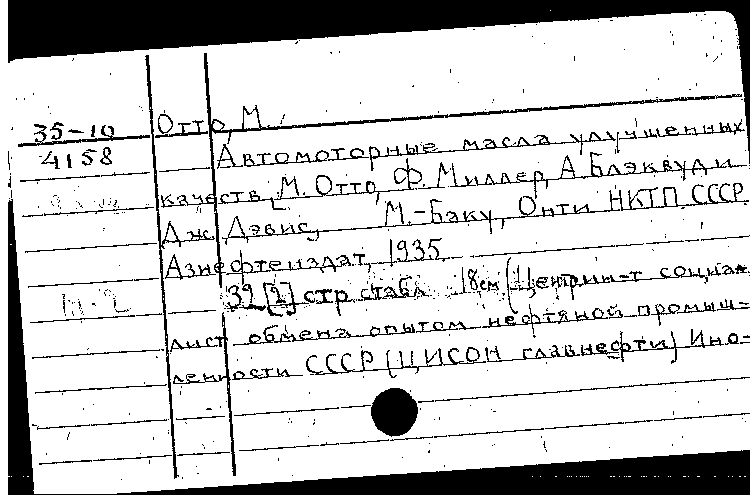 35-10 Отто, М.
4158 Автомоторные масла улучшенных
качеств, М. Отто, Ф. Миллер, А. Блэквуд и
Дж. Дэвис, М.-Баку, Онти НКТП СССР
Азнефтеиздат, 1935
39 [2] стр. с табл. 18 см (Центр ин-т социал
лист. обмена опытом нефтяной промыш-
ленности СССР (ЦИСОН главнефти) Ино-